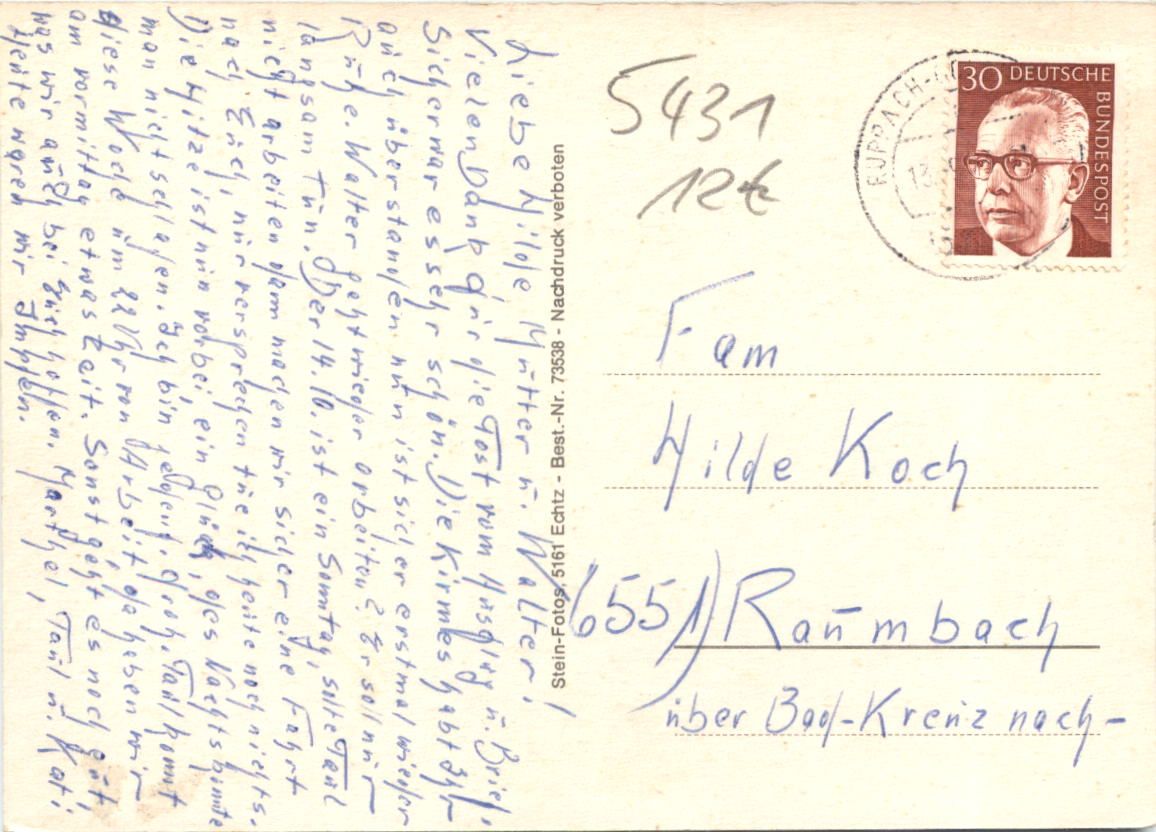 Liebe Hilde Mutter u. Walter!
Vielen Dank für die Post vom Ausflug u. Brief.
Sicher war es sehr schön. Die Kirmes habt Ihr
auch überstanden nun ist sicher erstmal wieder
Ruhe. Walter geht wieder arbeiten? Er soll nur
langsam tun. Der 14.10. ist ein Sonntag, sollte Paul
nicht arbeiten dann machen wir sicher eine Fahrt
nach Euch, nur versprechen tue ich heute noch nichts.
Die Hitze ist nun vorbei, ein Glück, des Nachts konnte
man nicht schlafen. Ich bin jedenf. froh. Paul kommt
diese Woche um 22 Uhr von Arbeit, da haben wir
am vormittag etwas Zeit. Sonst geht es noch gut,
was wir auch bei Euch hoffen. Marthel, Paul u. Kati
Heute waren wir Impfen.
Stein-Fotos, 5161 Echtz - Best.-Nr. 73538 - Nachdruck verboten
5431
12€
RUPPACH-
13
30 DEUTSCHE
BUNDESPOST
Fam
Hilde Koch
(6551) Raumbach
über Bad-Kreuznach-